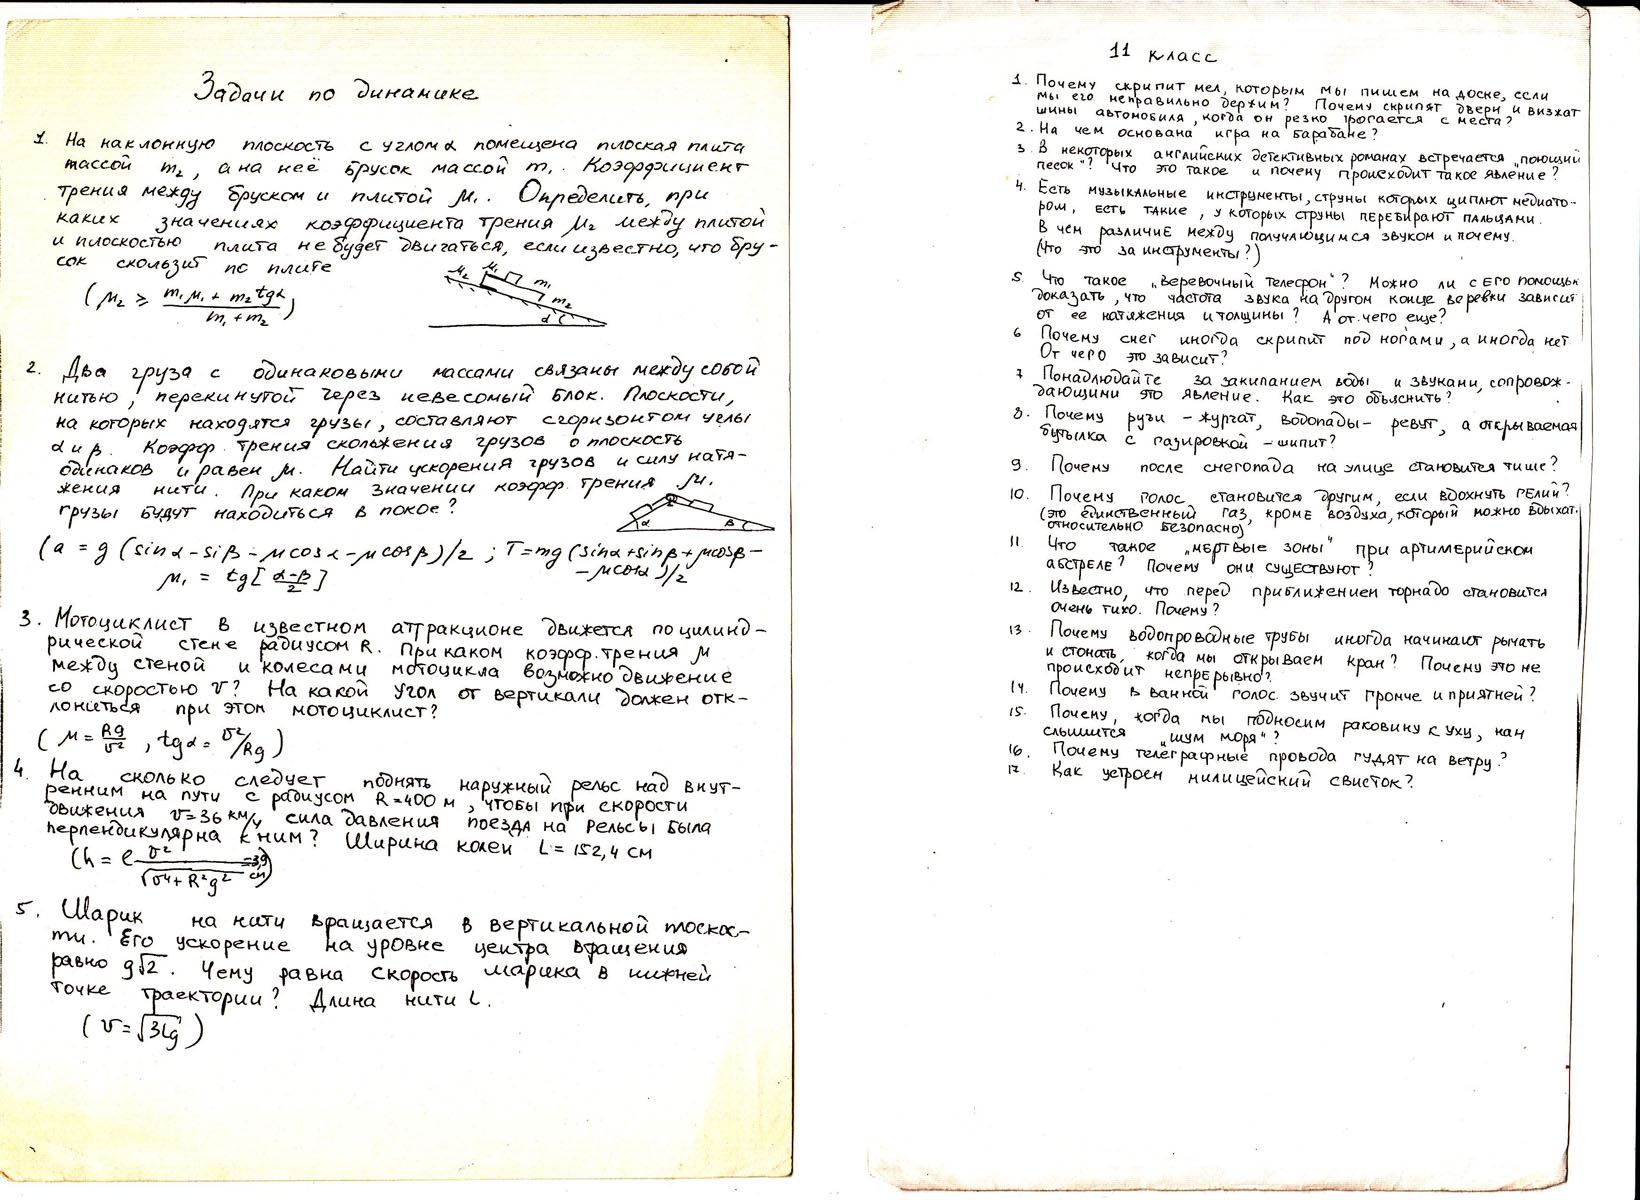 Задачи по динамике
1. На наклонную плоскость с углом α помещена плоская плита
массой m₂, а на неё брусок массой m₁. Коэффициент
трения между бруском и плитой μ₁. Определить, при
каких значениях коэффициента трения μ₂ между плитой
и плоскостью плита не будет двигаться, если известно, что бру-
сок скользит по плите
(μ₂ ≥ (m₁μ₁ + m₂tgα)/(m₁+m₂))
μ₂ μ₁ m₁ m₂ α
2. Два груза с одинаковыми массами связаны между собой
нитью, перекинутой через невесомый блок. Плоскости,
на которых находятся грузы, составляют с горизонтом углы
α и β. Коэфф. трения скольжения грузов о плоскость
одинаков и равен μ. Найти ускорения грузов и силу натя-
жения нити. При каком значении коэфф. трения μ₁
грузы будут находиться в покое?
α β
(a = g(sinα-siβ-μcosα-μcosβ)/2; T=mg(sinα+sinβ+μcosβ-
-μcosα)/2
μ₁ = tg[(α-β)/2]
3. Мотоциклист в известном аттракционе движется по цилинд-
рической стене радиусом R. При каком коэфф. трения μ
между стеной и колесами мотоцикла возможно движение
со скоростью v? На какой угол от вертикали должен отк-
лониться при этом мотоциклист?
(μ = Rg/v², tgα = v²/Rg)
4. На сколько следует поднять наружный рельс над внут-
ренним на пути с радиусом R=400 м, чтобы при скорости
движения v=36 км/ч сила давления поезда на рельсы была
перпендикулярна к ним? Ширина колеи L=152,4 см
(h = ℓ v²/√(v⁴+R²g²) =3,9 см)
5. Шарик на нити вращается в вертикальной плоскос-
ти. Его ускорение на уровне центра вращения
равно g√2. Чему равна скорость шарика в нижней
точке траектории? Длина нити L.
(v=√3Lg)
11 класс
1. Почему скрипит мел, которым мы пишем на доске, если
мы его неправильно держим? Почему скрипят двери и визжат
шины автомобиля, когда он резко трогается с места?
2. На чем основана игра на барабане?
3. В некоторых английских детективных романах встречается „поющий
песок"? Что это такое и почему происходит такое явление?
4. Есть музыкальные инструменты, струны которых циплют медиато-
ром, есть такие, у которых струны перебирают пальцами.
В чем различие между получающимся звуком и почему.
(Что это за инструменты?)
5. Что такое „веревочный телефон"? Можно ли с его помощью
доказать, что частота звука на другом конце веревки зависит
от ее натяжения и толщины? А от чего еще?
6 Почему снег иногда скрипит под ногами, а иногда нет.
От чего это зависит?
7 Понадлюдайте за закипанием воды и звуками, сопровож-
дающими это явление. Как это объяснить?
8. Почему ручьи - журчат, водопады - ревут, а открываемая
бутылка с газировкой - шипит?
9. Почему после снегопада на улице становится тише?
10. Почему голос становится другим, если вдохнуть гелий?
(это единственный газ, кроме воздуха, который можно вдыхат.
относительно безопасно)
11. Что такое „мертвые зоны" при артилерийском
абстреле? Почему они существуют?
12. Известно, что перед приближением торнадо становится
очень тихо. Почему?
13. Почему водопроводные трубы иногда начинают рычать
и стонать, когда мы открываем кран? Почему это не
происходит непрерывно?
14. Почему в ванной голос звучит громче и приятней?
15. Почему, когда мы подносим раковину к уху, нам
слышится „шум моря"?
16. Почему телеграфные провода гудят на ветру?
17. Как устроен милицейский свисток?